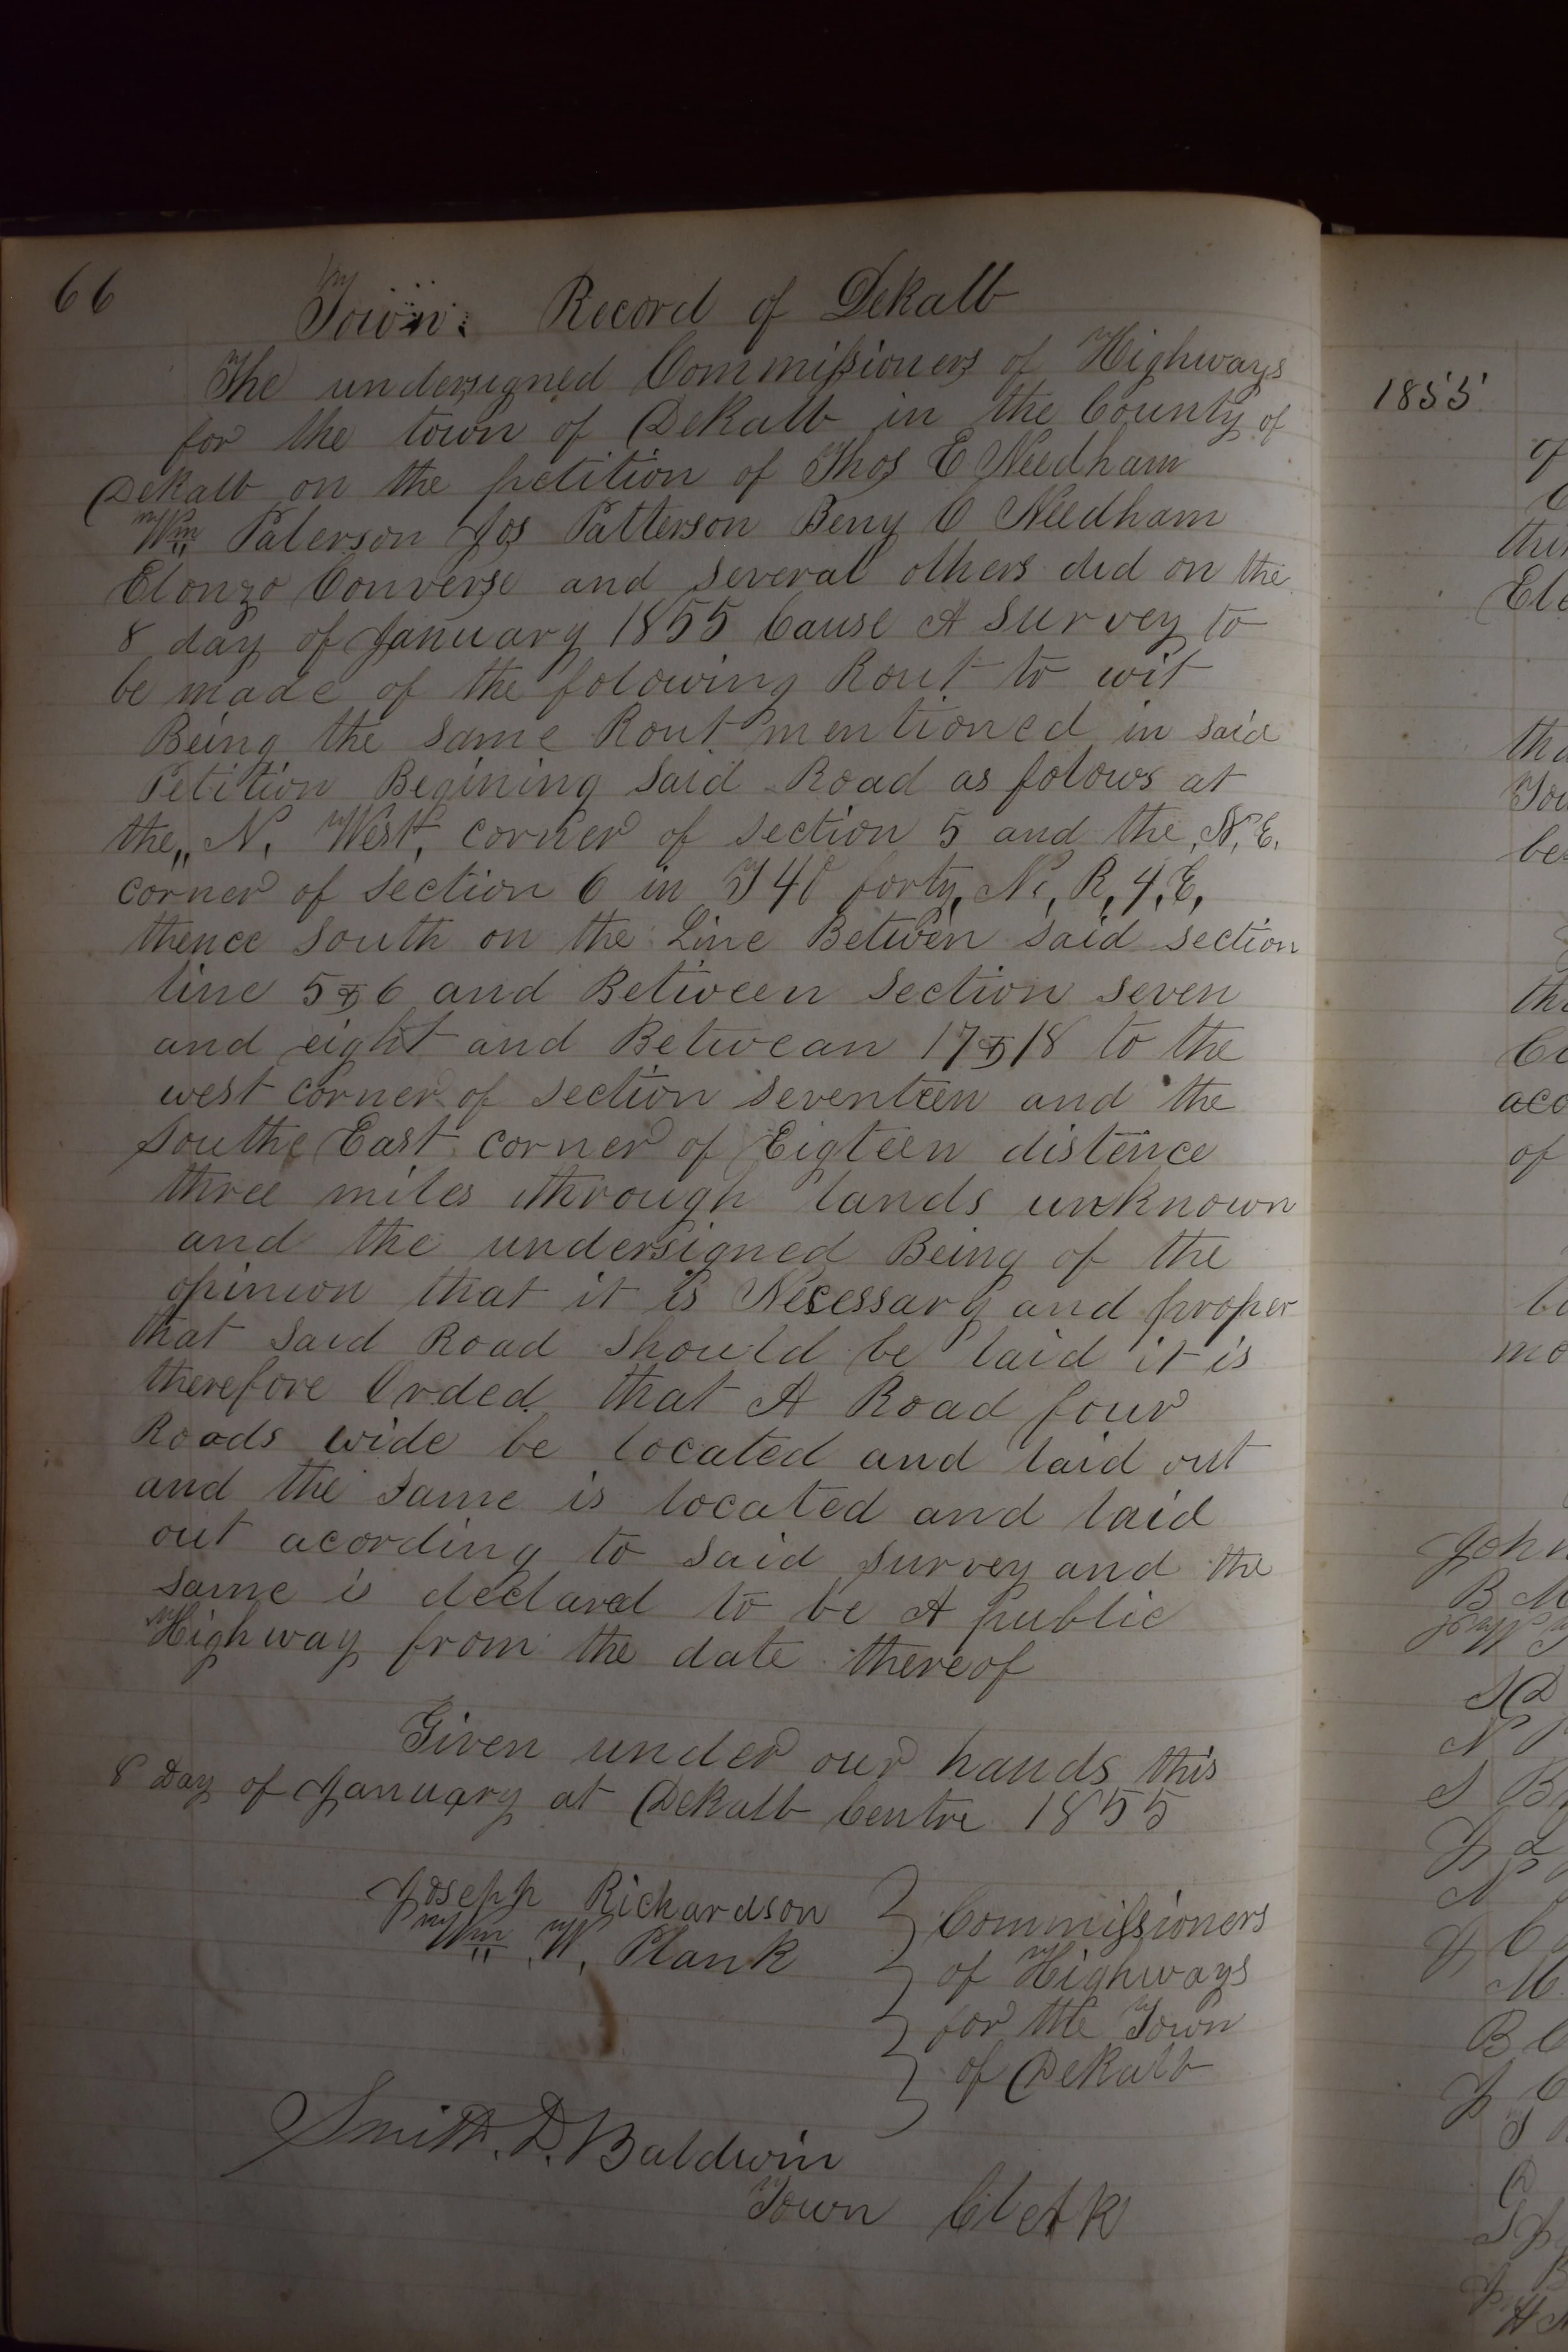 66
Town: Record of Dekalb
The undersigned Commissioners of Highways
for the town of Dekalb in the County of
Dekalb on the petition of Thos E Needham
Wm Paterson Jos Patterson Benj C Needham
Elonzo Converse and several others did on the
8 day of January 1855 Cause A Survey to
be made of the folowing Rout to wit
Being the same Rout mentioned in said
Petition Begining said Road as folows at
the,, N. West, corner of section 5 and the, N, E.
corner of section 6 in T 40 forty, N, R, 4, E,
thence south on the Line Betwen said section
line 5 & 6 and Between section seven
and eight and Betwean 17 & 18 to the
west corner of section seventeen and the
Southe East corner of Eigteen distence
three miles through lands unknown
and the undersigned Being of the
opinion that it is Necessary and proper
that said Road should be laid it is
therefore Orded that A Road four
Roads wide be located and laid out
and the same is located and laid
out acording to said survey and the
same is declared to be A public
Highway from the date thereof
Given under our hands this
8 Day of January at Dekalb Centre 1855
Joseph Richardson } Commissioners
Wm W, Plank } of Highways
} for the Town
} of Dekalb
Smith. D. Baldwin
Town Clerk
1855
of
thu
Ele
tha
Tow
be
the
aco
of
mo
John
B M
S D
N
S B
B